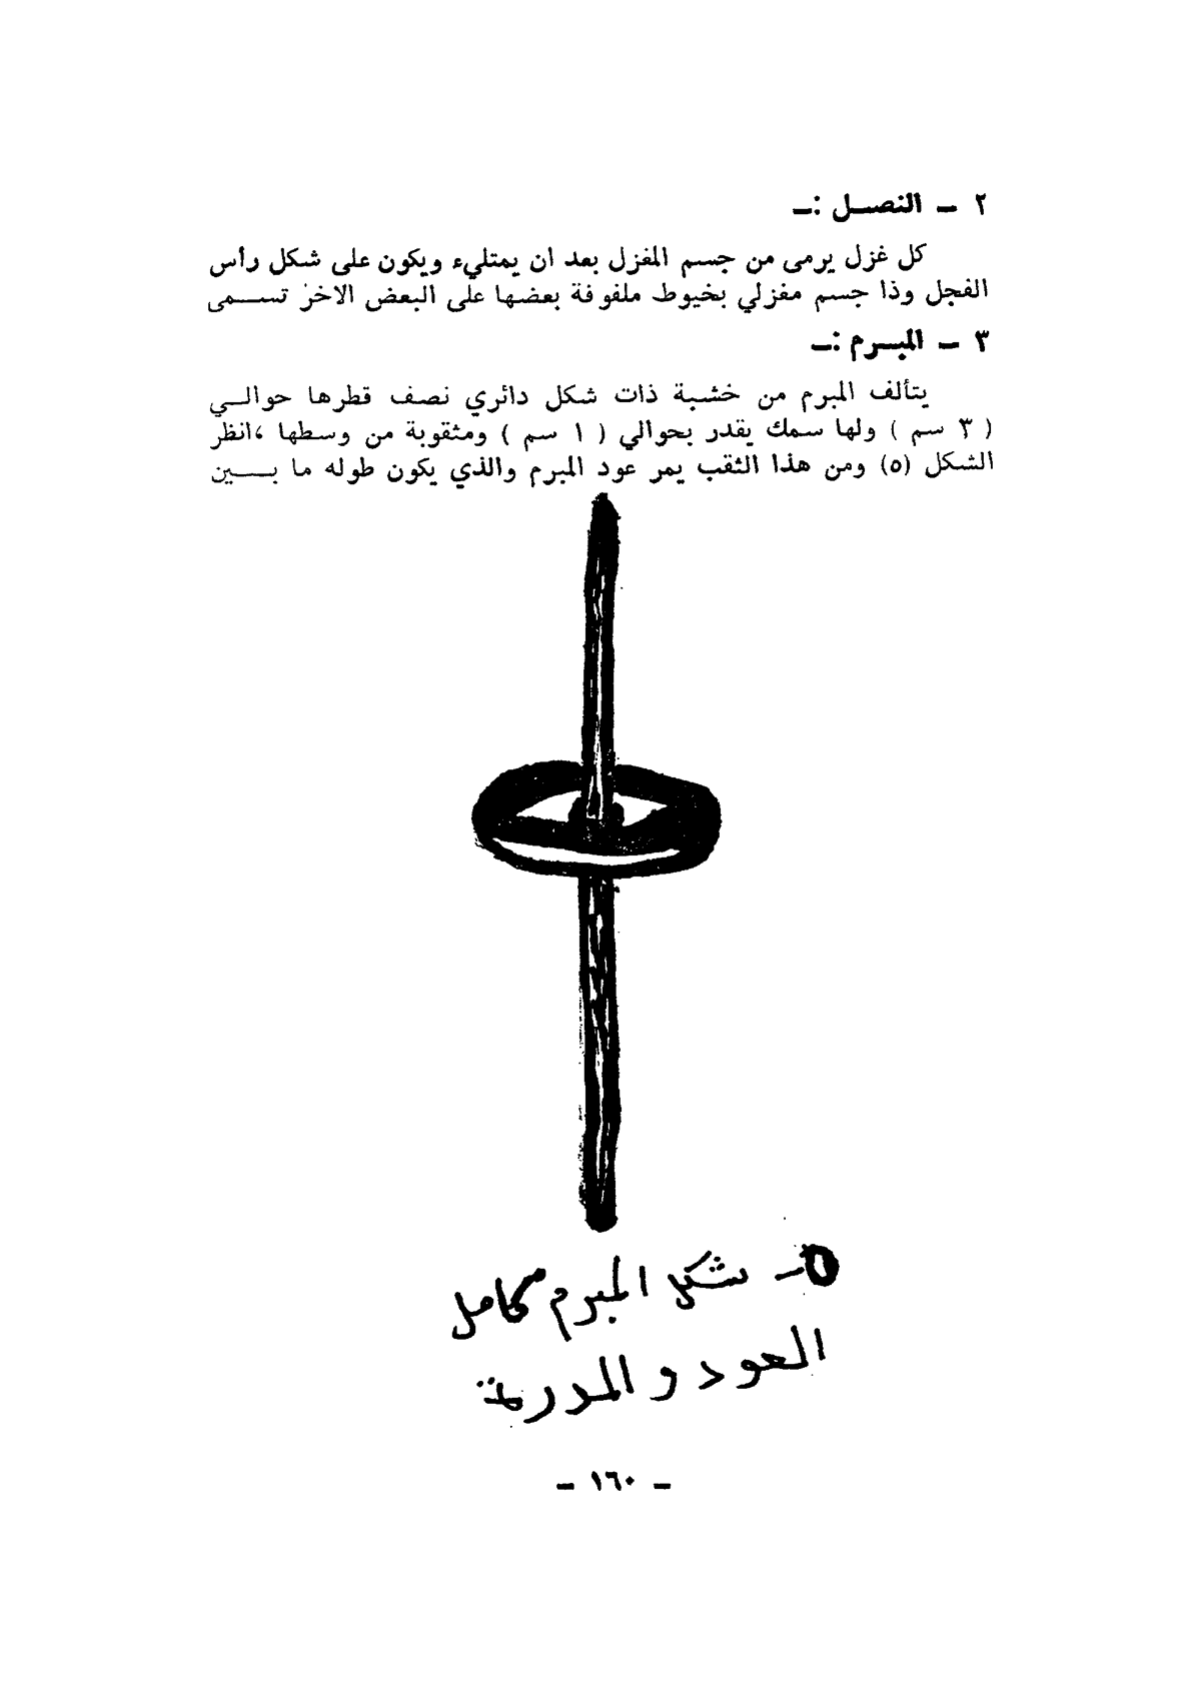 ٢ ــ النصــل :ــ
كل غزل يرمى من جسم المغزل بعد ان يمتليء ويكون على شكل رأس
الفجل وذا جسم مغزلي بخيوط ملفوفة بعضها على البعض الاخر تســـمى
٣ ــ المبــرم :ــ
يتألف المبرم من خشبة ذات شكل دائري نصف قطرها حوالــي
( ٣ سم ) ولها سمك يقدر بحوالي ( ١ سم ) ومثقوبة من وسطها ،انظر
الشكل (٥) ومن هذا الثقب يمر عود المبرم والذي يكون طوله ما بـــــين
٥ــ شكل المبرم كامل
العود و المدرة
ــ ١٦٠ ــ